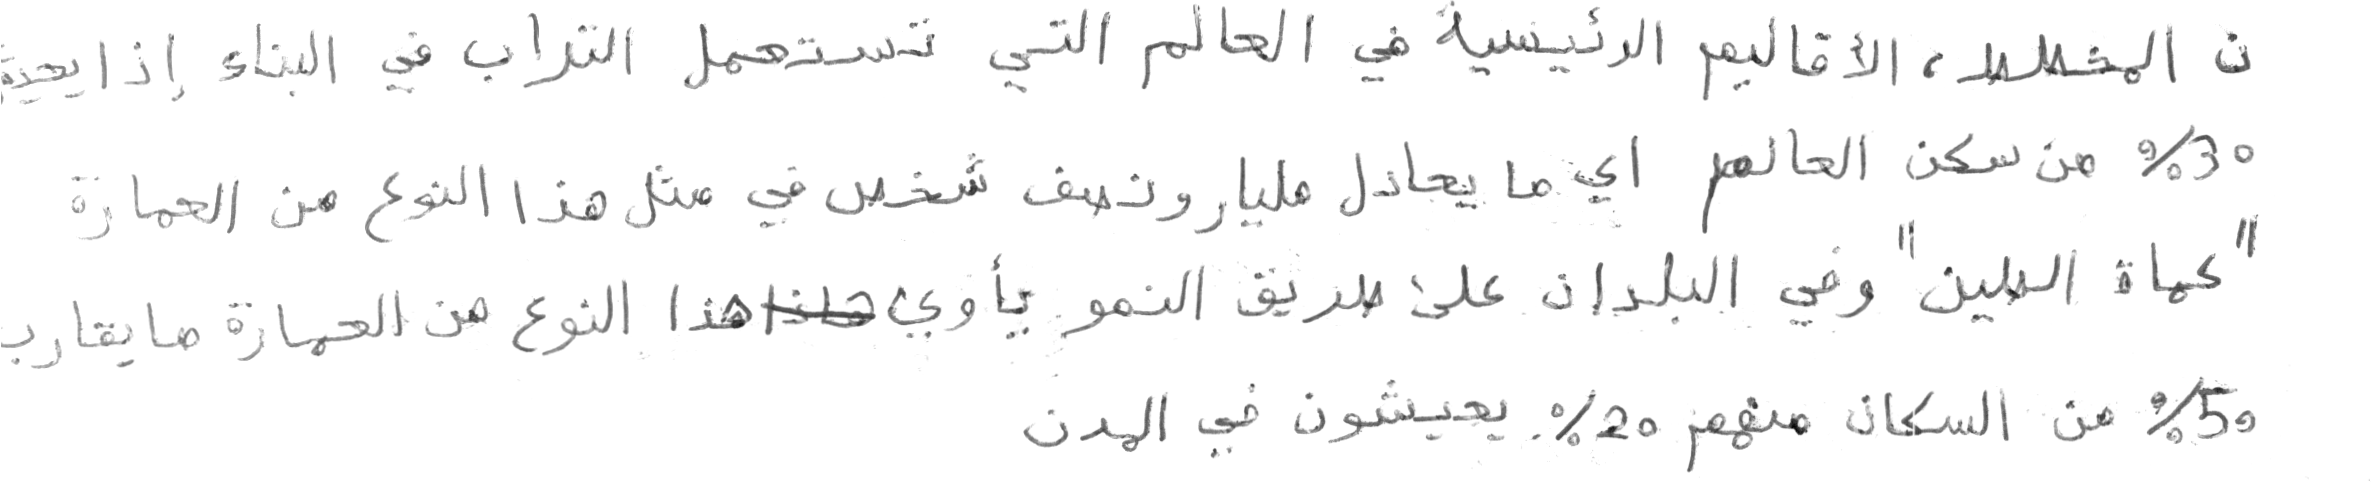 ن المخطط، الأقاليم الرئيسية في العالم التي تستعمل التراب في البناء إذا يعيد
30% من سكن العالم اي ما يعادل مليار ونصف شخص في مثل هذا النوع من العمارة
"عماة الطين" وفي البلدان على طريق النمو يأوي هذا النوع من العمارة ما يقارب
50% من السكان منهم 20% يعيشون في المدن